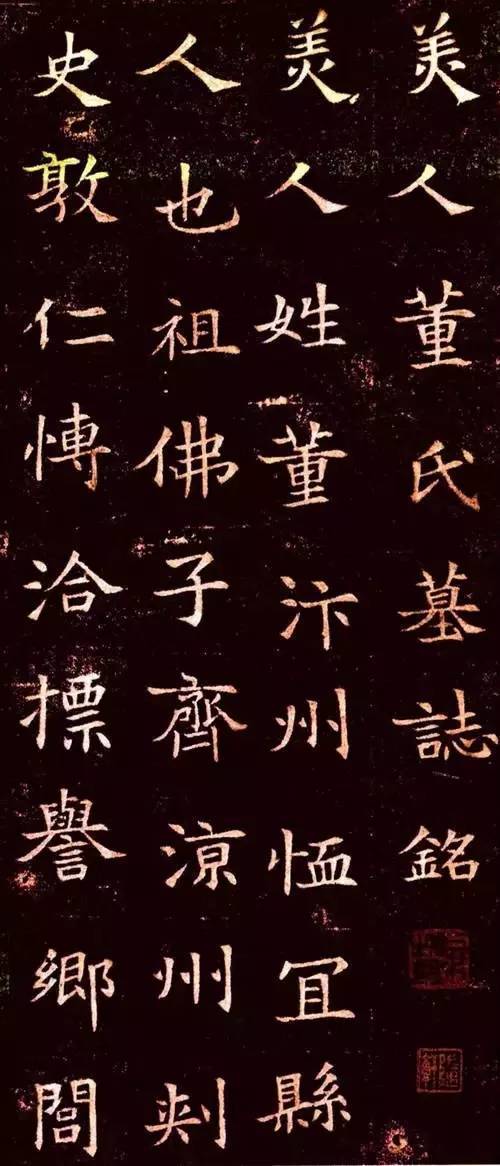 美人董氏墓誌銘
美人姓董汴州恤冝縣
人也祖佛子齊涼州刾
史敦仁愽洽摽譽鄉閭